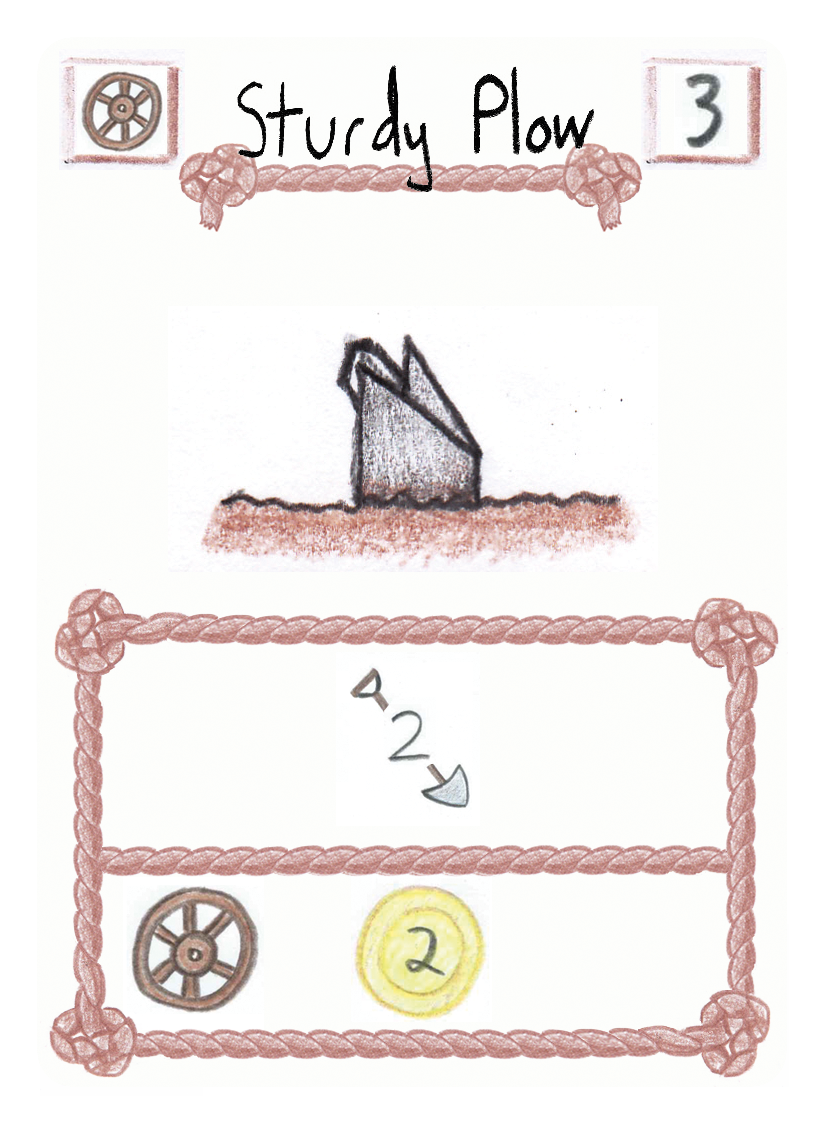 Sturdy Plow
3
2
2